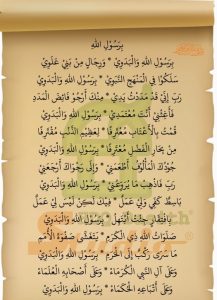 بِرَسُولِ اللهِ
بِرَسُولِ اللهِ وَالْبَدَوِيْ * وَرِجَالٍ مِنْ بَنِيْ عَلَوِيْ
سَلَكُوْا فِى الْمَنْهَجِ النَّبَوِيْ * بِرَسُولِ اللهِ وَالْبَدَوِيْ
رَبِّ إِنِّيْ قَدْ مَدَدْتُ يَدِيْ * مِنْكَ أَرْجُوْ فَائِضَ الْمَدَدِ
فَأَغِثْنِيْ أَنْتَ مُعْتَمَدِيْ * بِرَسُولِ اللهِ وَالْبَدَوِيْ
قُمْتُ بِالْأَعْتَابِ مُعْتَرِفًا * لِعَظِيْمِ الذَّنْبِ مُقْتَرِفًا
مِنْ بِحَارِ الْفَضْلِ مُغْتَرِفًا * بِرَسُولِ اللهِ وَالْبَدَوِيْ
جُوْدُكَ الْمَأْلُوْفُ أَطْمَعَنِيْ * وَإِلَى رَجْوَاكَ أَرْجَعَنِيْ
رَبِّ فَاذْهِبْ مَا يُرَوِّعُنِيْ * بِرَسُولِ اللهِ وَالْبَدَوِيْ
بَاسِطٌ كَفِّيْ وَلِيْ عَمَلُ * فِيْكَ لٰكِنْ لَيْسَ لِيْ عَمَلُ
بِرَسُولِ اللهِ وَالْبَدَوِيْ
صَلَوَاتُ اللهِ ذِي الْكَرَمِ * تَتَغَشَّى صَفْوَةَ الْأُمَمِ
مَا سَرَى رَكْبٌ إِلَى الْحَرَمِ * بِرَسُولِ اللهِ وَالْبَدَوِيْ
وَعَلَى آلِ النَّبِيْ الْكُرَمَاءْ * وَعَلَى أَصْحَابِهِ الْعُلَمَاءْ
وَعَلَى أَتْبَاعِهِ الْحُكَمَاءْ * بِرَسُولِ اللهِ وَالْبَدَوِيْ